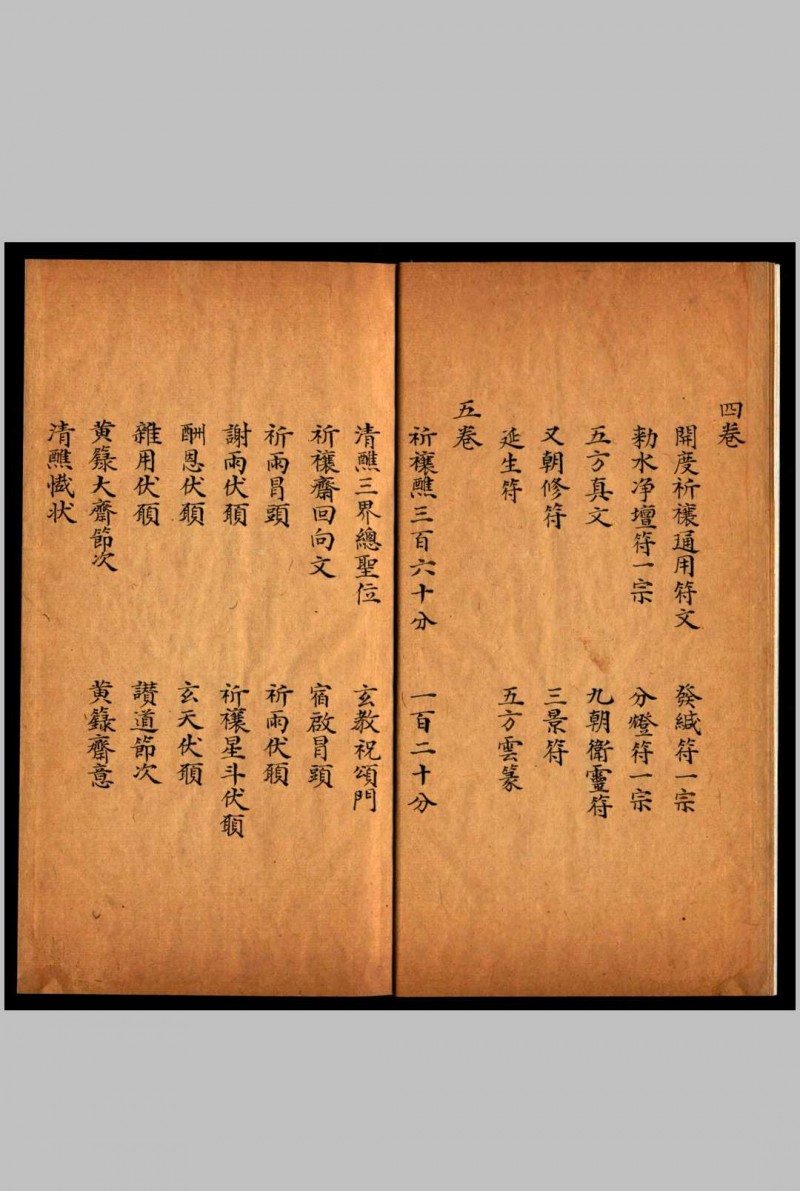 四卷
開度祈禳通用符文 發緘符一宗
勑水净壇符一宗 分燈符一宗
五方真文 九朝衛靈符
又朝修符 三景符
延生符 五方雲篆
五卷
祈禳醮三百六十分 一百二十分
清醮三界總聖位 玄教祝頌門
祈禳齋回向文 宿啟冒頭
祈雨冒頭 祈雨伏願
謝雨伏願 祈禳星斗伏願
酬恩伏願 玄天伏願
雜用伏願 讃道節次
黄籙大齋節次 黄籙齋意
清醮懴状